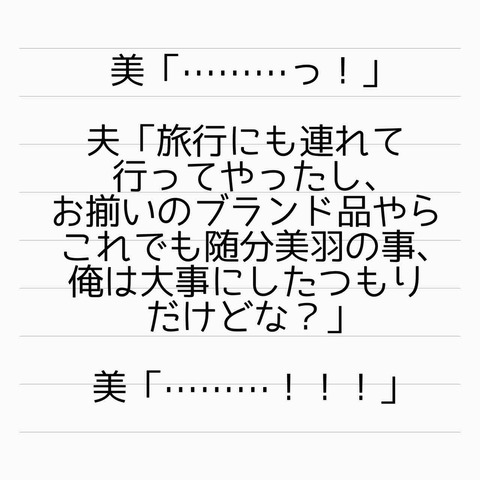 美「………っ！」
夫「旅行にも連れて
行ってやったし、
お揃いのブランド品やら
これでも随分美羽の事、
俺は大事にしたつもり
だけどな？」
美「………！！！」